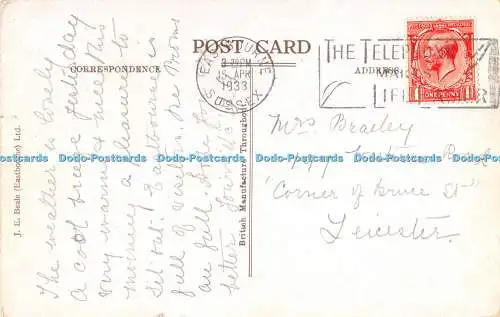 POST CARD
CORRESPONDENCE
ADDRESS
EASTBOURNE
SUSSEX
15 APR
1933
THE
LIFE
ONE PENNY
The weather is lovely
A cool breeze yesterday
very warm & nice this
morning a pleasure to
sit out. Eastbourne is
full of visitors. The Rooms
are full.
better
Mrs Bradley
Road
"Corner of Bruce St"
Leicester
J. E. Beale (Eastbourne) Ltd.
British Manufacture Throughout
Dodo-Postcards Dodo-Postcards Dodo-Postcards Dodo-Postcards Dodo-Postcards Dodo-Postcards